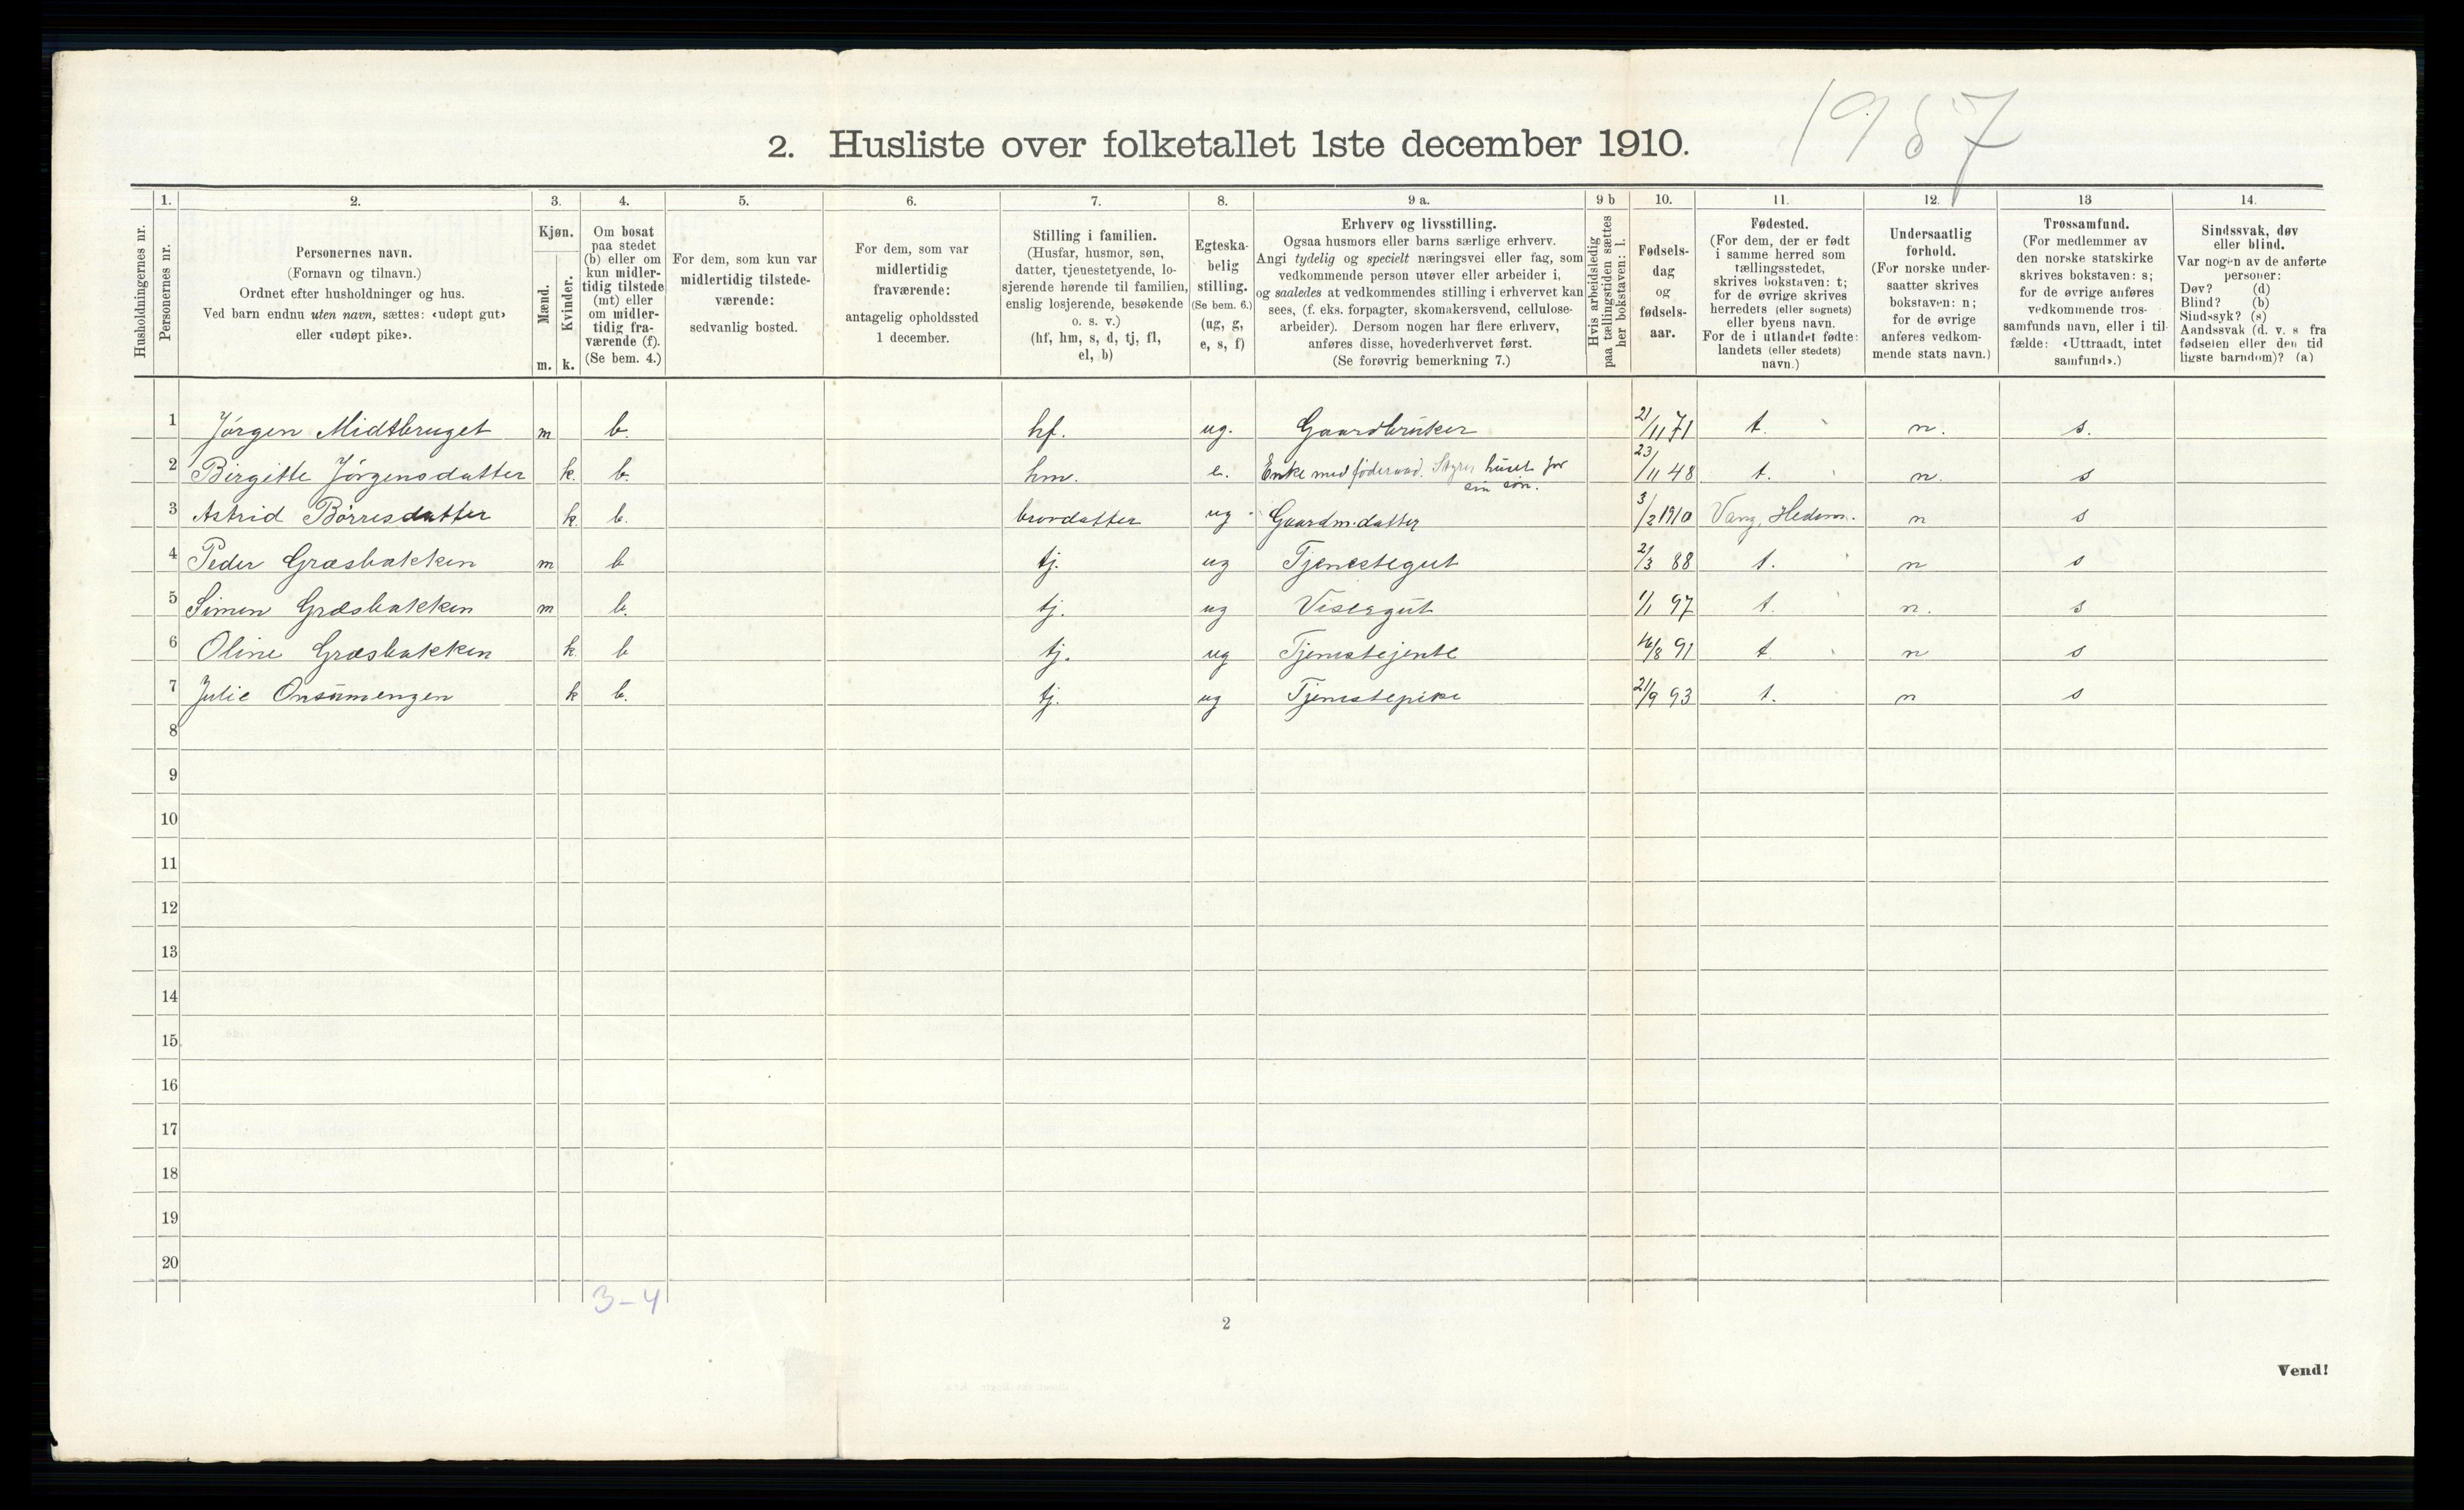 1987
2. Husliste over folketallet 1ste december 1910.
Husholdningernes nr.
1.
Personernes nr.
2.
Personernes navn.
(Fornavn og tilnavn.)
Ordnet efter husholdninger og hus.
Ved barn endnu uten navn, sættes: «udøpt gut»
eller «udøpt pike».
3.
Kjøn.
Mænd.
Kvinder.
m. k.
4.
Om bosat
paa stedet
(b) eller om
kun midler-
tidig tilstede
(mt) eller
om midler-
tidig fra-
værende (f).
(Se bem. 4.)
5.
For dem, som kun var
midlertidig tilstede-
værende:
sedvanlig bosted.
6.
For dem, som var
midlertidig
fraværende:
antagelig opholdssted
1 december.
7.
Stilling i familien.
(Husfar, husmor, søn,
datter, tjenestetyende, lo-
sjerende hørende til familien,
enslig losjerende, besøkende
o. s. v.)
(hf, hm, s, d, tj, fl,
el, b)
8.
Egteska-
belig
stilling.
(Se bem. 6.)
(ug, g,
e, s, f)
9 a.
Erhverv og livsstilling.
Ogsaa husmors eller barns særlige erhverv.
Angi tydelig og specielt næringsvei eller fag, som
vedkommende person utøver eller arbeider i,
og saaledes at vedkommendes stilling i erhvervet kan
sees, (f. eks. forpagter, skomakersvend, cellulose-
arbeider). Dersom nogen har flere erhverv,
anføres disse, hovederhvervet først.
(Se forøvrig bemerkning 7.)
9 b
Hvis arbeidsledig
paa tællingstiden sættes
her bokstaven: l.
10.
Fødsels-
dag
og
fødsels-
aar.
11.
Fødested.
(For dem, der er født
i samme herred som
tællingsstedet,
skrives bokstaven: t;
for de øvrige skrives
herredets (eller sognets)
eller byens navn.
For de i utlandet fødte:
landets (eller stedets)
navn.)
12.
Undersaatlig
forhold.
(For norske under-
saatter skrives
bokstaven: n;
for de øvrige
anføres vedkom-
mende stats navn.)
13
Trossamfund.
(For medlemmer av
den norske statskirke
skrives bokstaven: s;
for de øvrige anføres
vedkommende tros-
samfunds navn, eller i til-
fælde: «Uttraadt, intet
samfund».)
14.
Sindssvak, døv
eller blind.
Var nogen av de anførte
personer:
Døv? (d)
Blind? (b)
Sindssyk? (s)
Aandssvak (d. v. s. fra
fødselen eller den tid
ligste barndom)? (a)
1 Jørgen Midtbruget m b. hf. ug. Gaardbruker 21/11 71 t. n. s.
2 Birgitte Jørgensdatter k. b. hm. e. Enke med føderaad. Styrer huset for sin søn. 23/11 48 t. n. s
3 Astrid Børresdatter k b. brordatter ug. Gaardm.datter 3/2 1910 Vang, Hedem. n s
4 Peder Græsbakken m b tj. ug Tjenestegut 2/3 88 t. n s
5 Simen Græsbakken m b. tj. ug Visergut 1/1 97 t. n. s
6 Oline Græsbakken k. b tj. ug Tjenestejente 16/8 91 t n s
7 Julie Onsumengen k b. tj. ug Tjenestepike 21/9 93 t. n s
8
9
10
11
12
13
14
15
16
17
18
19
20
3-4
2
Vend!